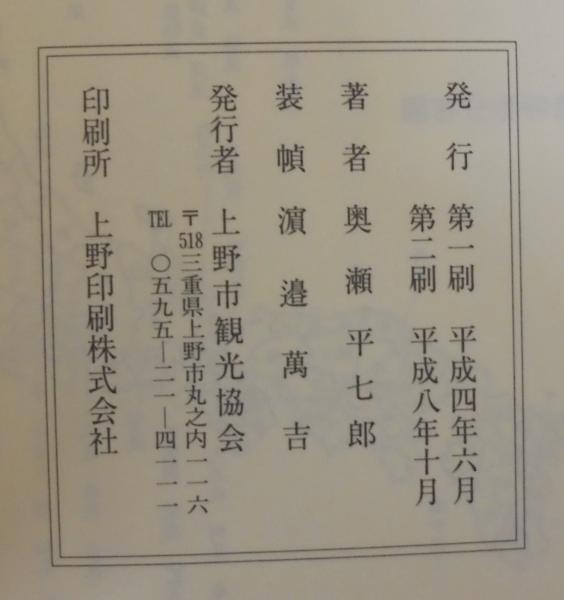 発行 第一刷 平成四年六月
第二刷 平成八年十月
著者 奥瀬平七郎
装幀 濵邉萬吉
発行者 上野市観光協会
〒518三重県上野市丸之内一一六
TEL 〇五九五―二一―四一一一
印刷所 上野印刷株式会社